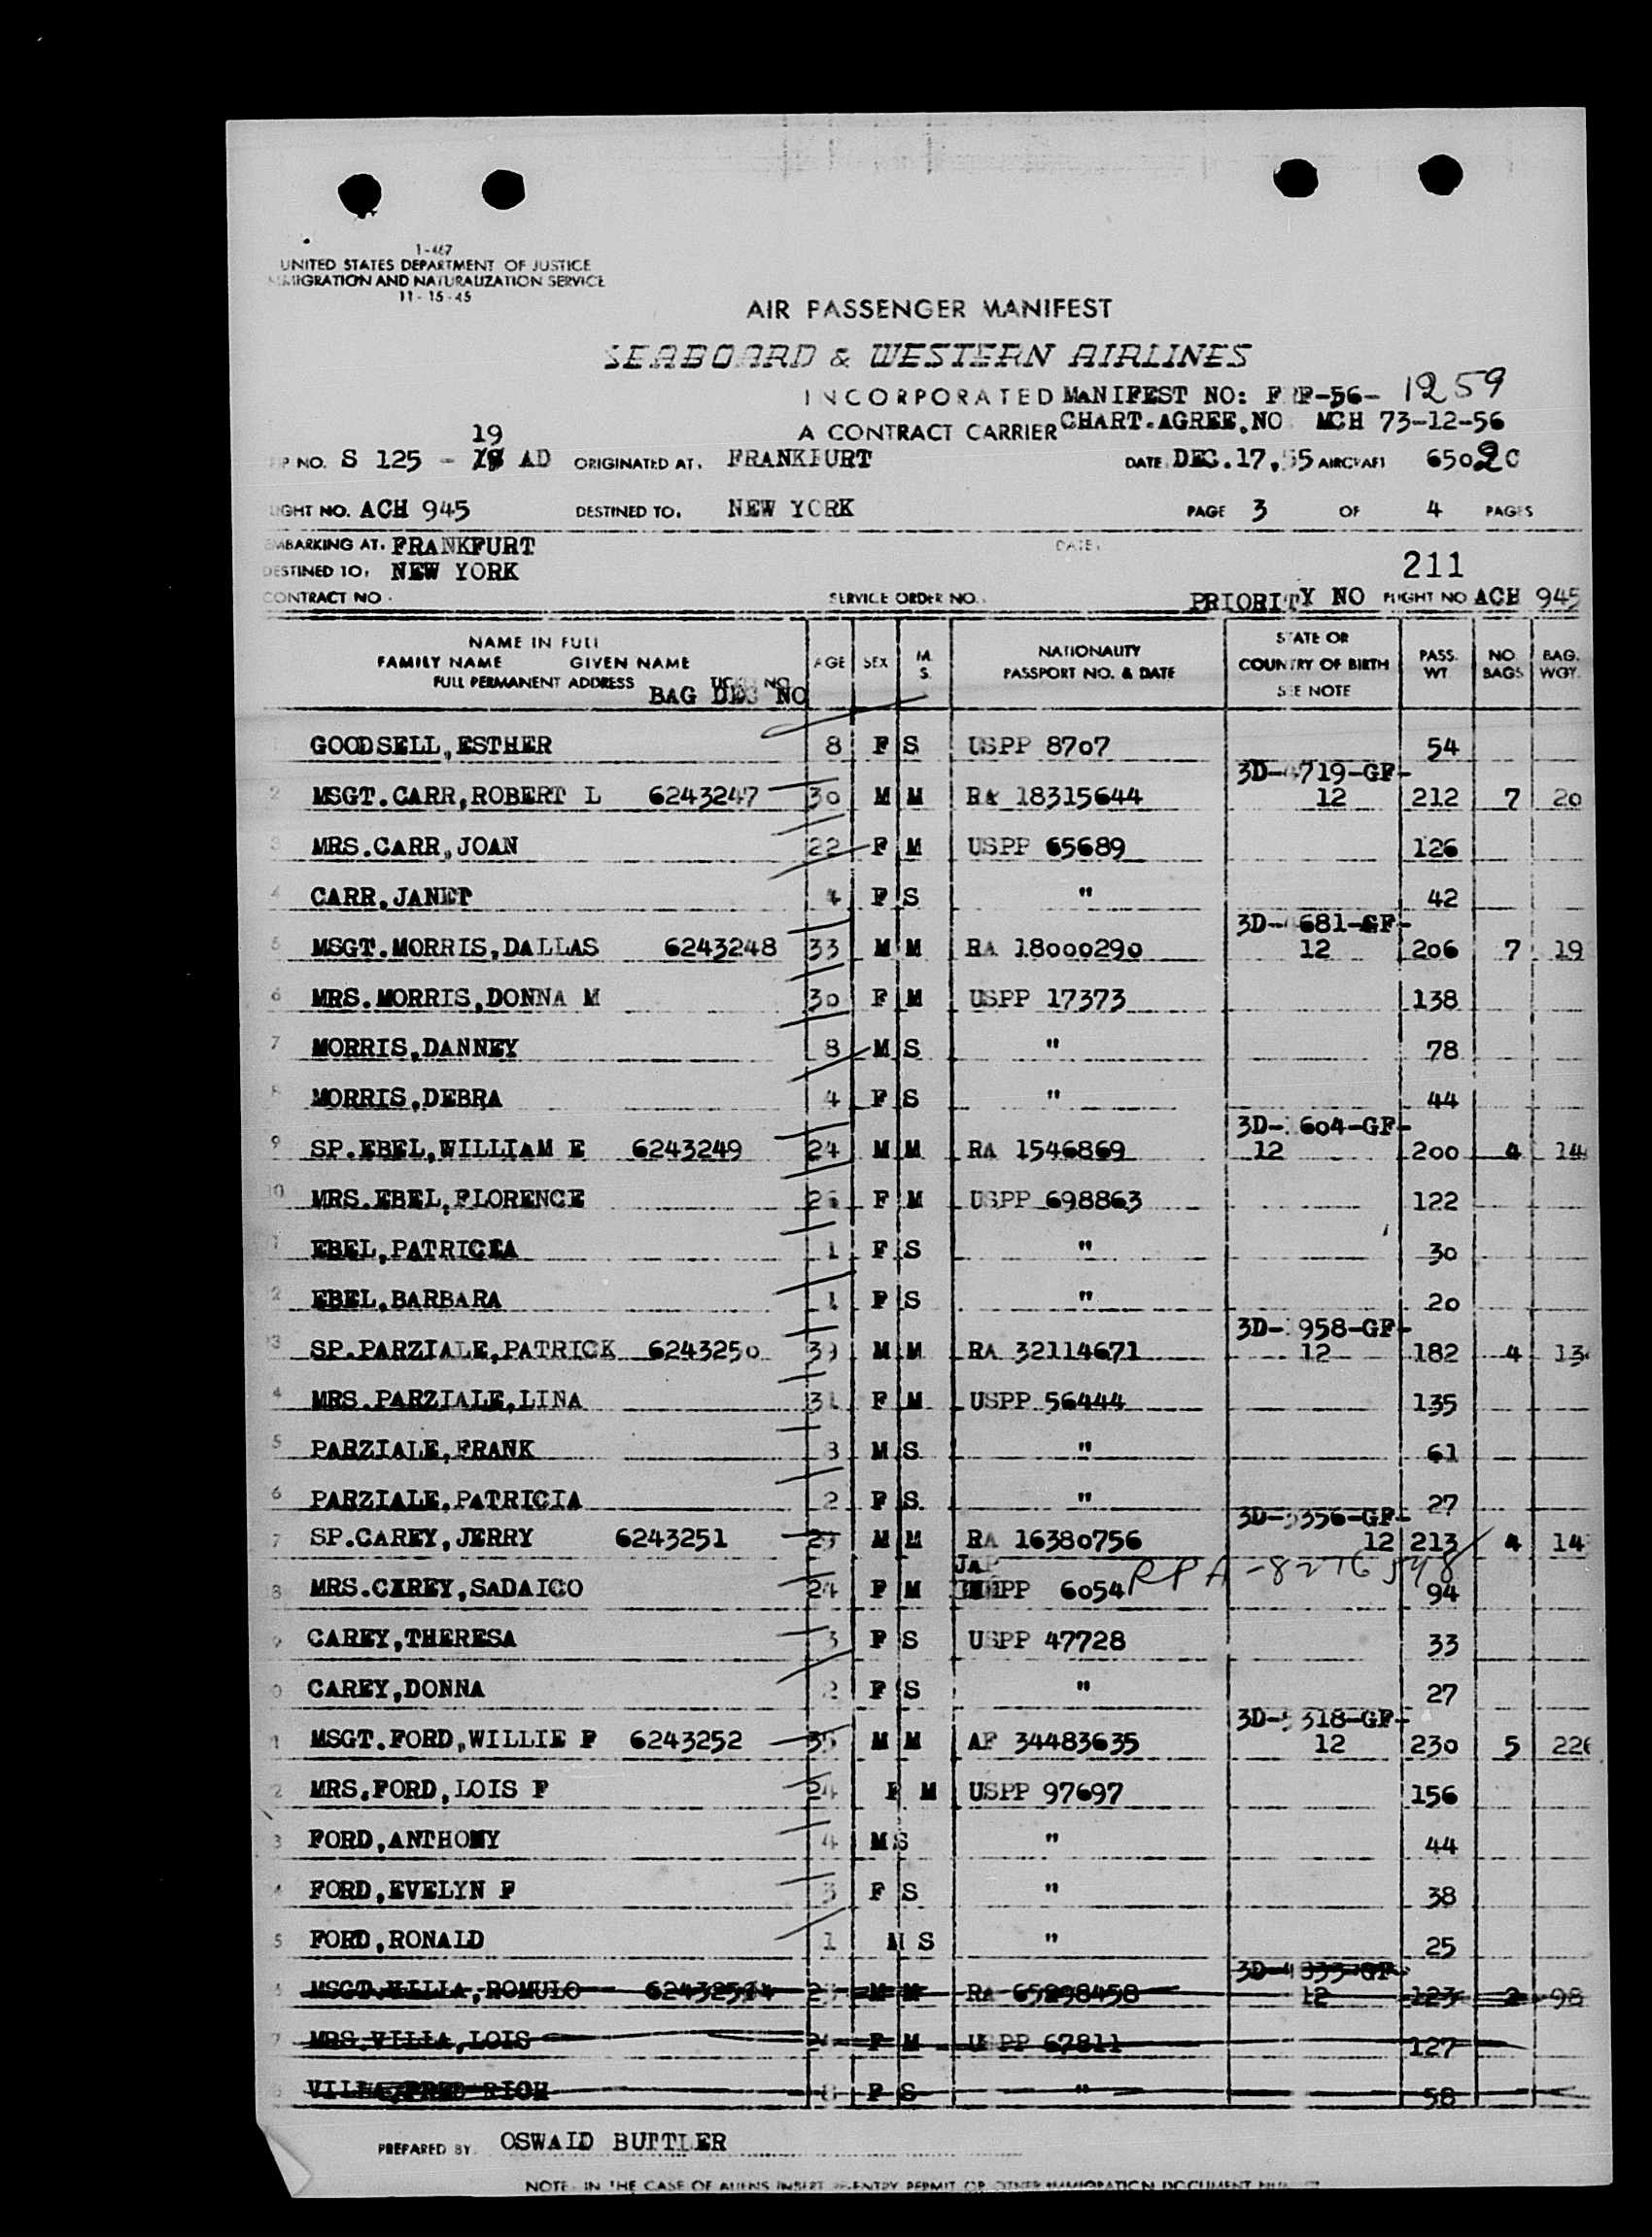 1-467
UNITED STATES DEPARTMENT OF JUSTICE
IMMIGRATION AND NATURALIZATION SERVICE
11-15-45
AIR PASSENGER MANIFEST
SEABOARD & WESTERN AIRLINES
INCORPORATED MANIFEST NO: FRF-56- 1259
A CONTRACT CARRIER CHART.AGREE.NO MCH 73-12-56
19
NO. S 125 - AD ORIGINATED AT. FRANKFURT DATE DEC.17,55 AIRCRAFT 6502C
FLIGHT NO. ACH 945 DESTINED TO. NEW YORK PAGE 3 OF 4 PAGES
EMBARKING AT. FRANKFURT DATE.
DESTINED TO. NEW YORK 211
CONTRACT NO. SERVICE ORDER NO. PRIORITY NO FLIGHT NO ACH 945
NAME IN FULL
FAMILY NAME GIVEN NAME
FULL PERMANENT ADDRESS BAG DES NO
AGE SEX M. S. NATIONALITY PASSPORT NO. & DATE STATE OR COUNTRY OF BIRTH SEE NOTE PASS. WT. NO. BAGS BAG. WGT.
GOODSELL,ESTHER 8 F S USPP 8707 54
3D- 719-GF-
2 MSGT.CARR,ROBERT L 6243247 30 M M RA 18315644 12 212 7 20
3 MRS.CARR,JOAN 22 F M USPP 65689 126
4 CARR,JANET 4 F S " 42
3D- 681-GF-
5 MSGT.MORRIS,DALLAS 6243248 33 M M RA 18000290 12 206 7 19
6 MRS.MORRIS,DONNA M 30 F M USPP 17373 138
7 MORRIS,DANNEY 8 M S " 78
8 MORRIS,DEBRA 4 F S " 44
3D- 604-GF-
9 SP.EBEL,WILLIAM E 6243249 24 M M RA 1546869 12 200 4 14
10 MRS.EBEL,FLORENCE F M USPP 698863 122
1 EBEL,PATRICIA 1 F S " 30
2 EBEL,BARBARA 1 F S " 20
3D- 958-GF-
13 SP.PARZIALE,PATRICK 6243250 39 M M RA 32114671 12 182 4 13
4 MRS.PARZIALE,LINA 31 F M USPP 56444 135
5 PARZIALE,FRANK 8 M S " 61
6 PARZIALE,PATRICIA 2 F S " 27
3D- 356-GF-
7 SP.CAREY,JERRY 6243251 M M RA 16380756 12 213 4 14
JAP
8 MRS.CAREY,SADAICO 24 F M PP 6054 RPA-8276548 94
9 CAREY,THERESA 3 F S USPP 47728 33
0 CAREY,DONNA 2 F S " 27
3D- 318-GF-
1 MSGT.FORD,WILLIE F 6243252 35 M M AF 34483635 12 230 5 226
2 MRS.FORD,LOIS F 24 F M USPP 97697 156
3 FORD,ANTHONY 4 M S " 44
4 FORD,EVELYN F 3 F S " 38
5 FORD,RONALD 1 M S " 25
MSGT.VILLA,ROMULO M M RA 12 123 2 98
7 MRS.VILLA,LOIS F M USPP 67811 127
F S " 58
PREPARED BY. OSWALD BUTTLER
NOTE. IN THE CASE OF ALIENS INSERT RE-ENTRY PERMIT OR OTHER IMMIGRATION DOCUMENT